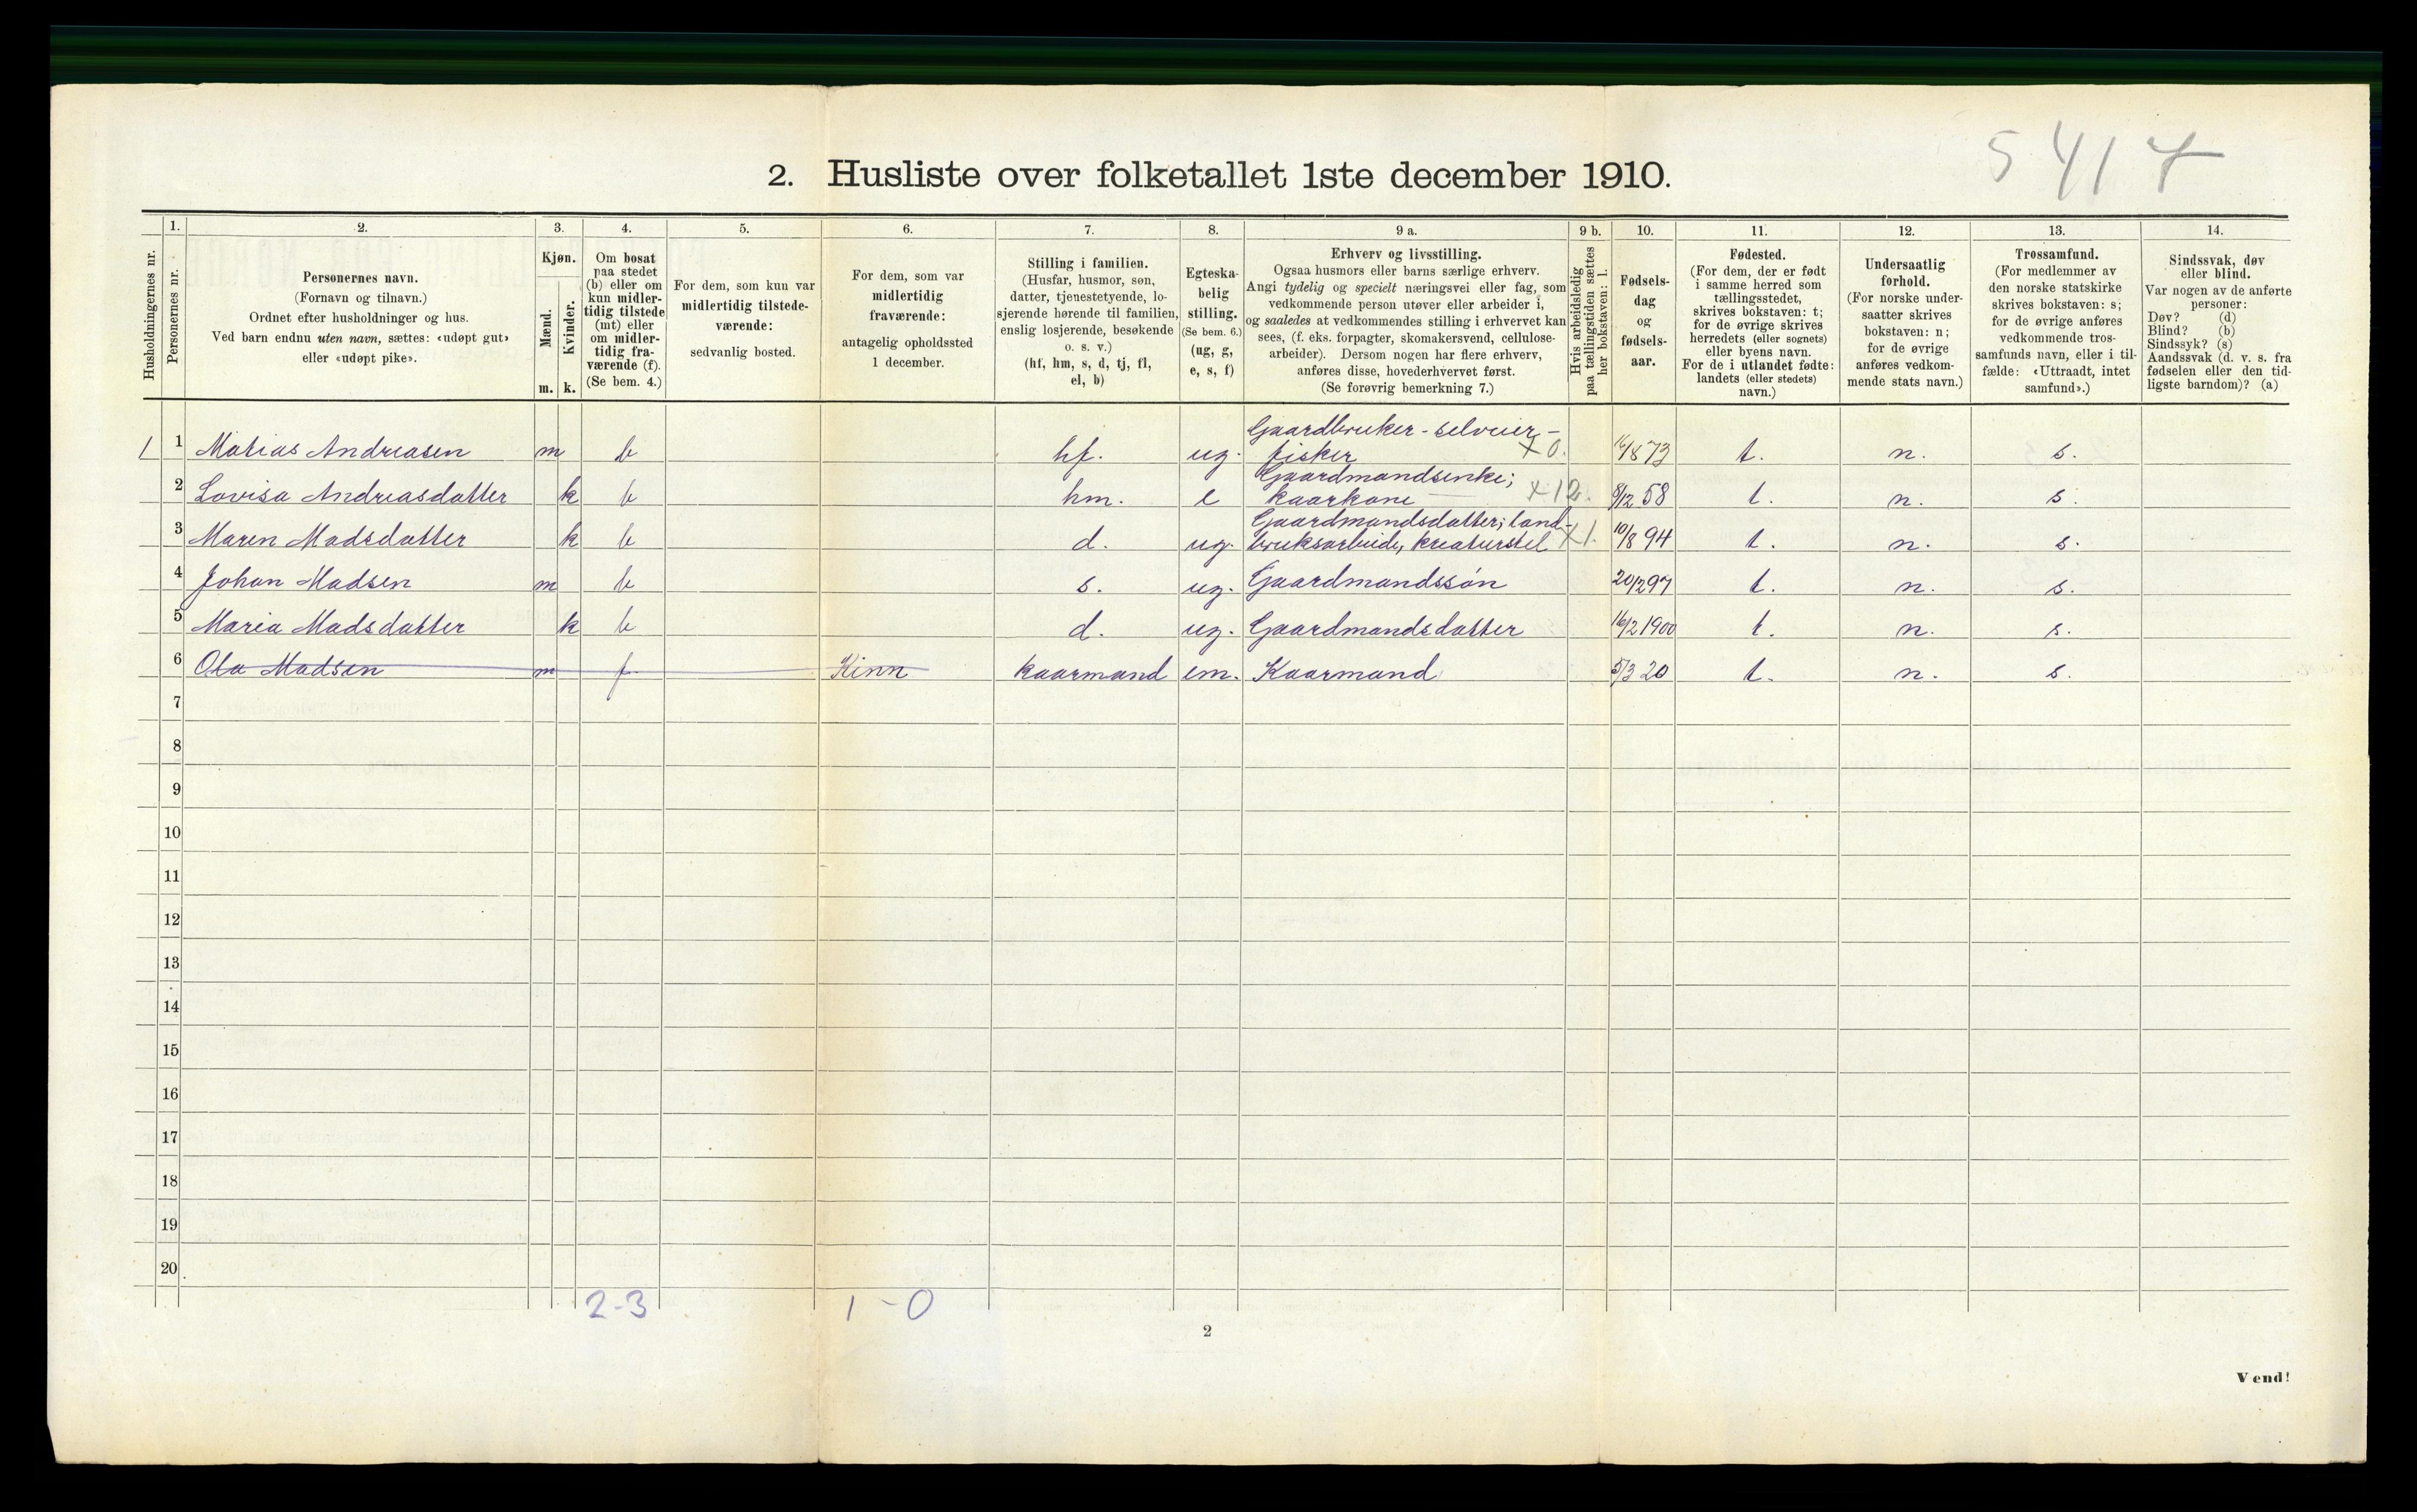 5417
2. Husliste over folketallet 1ste december 1910.
Husholdningernes nr.
1. Personernes nr.
2. Personernes navn.
(Fornavn og tilnavn.)
Ordnet efter husholdninger og hus.
Ved barn endnu uten navn, sættes: «udøpt gut»
eller «udøpt pike».
3. Kjøn.
Mænd. m.
Kvinder. k.
4. Om bosat
paa stedet
(b) eller om
kun midler-
tidig tilstede
(mt) eller
om midler-
tidig fra-
værende (f).
(Se bem. 4.)
5. For dem, som kun var
midlertidig tilstede-
værende:
sedvanlig bosted.
6. For dem, som var
midlertidig
fraværende:
antagelig opholdssted
1 december.
7. Stilling i familien.
(Husfar, husmor, søn,
datter, tjenestetyende, lo-
sjerende hørende til familien,
enslig losjerende, besøkende
o. s. v.)
(hf, hm, s, d, tj, fl,
el, b)
8. Egteska-
belig
stilling.
(Se bem. 6.)
(ug, g,
e, s, f)
9 a. Erhverv og livsstilling.
Ogsaa husmors eller barns særlige erhverv.
Angi tydelig og specielt næringsvei eller fag, som
vedkommende person utøver eller arbeider i,
og saaledes at vedkommendes stilling i erhvervet kan
sees, (f. eks. forpagter, skomakersvend, cellulose-
arbeider). Dersom nogen har flere erhverv,
anføres disse, hovederhvervet først.
(Se forøvrig bemerkning 7.)
9 b. Hvis arbeidsledig
paa tællingstiden sættes
her bokstaven: l.
10. Fødsels-
dag
og
fødsels-
aar.
11. Fødested.
(For dem, der er født
i samme herred som
tællingsstedet,
skrives bokstaven: t;
for de øvrige skrives
herredets (eller sognets)
eller byens navn.
For de i utlandet fødte:
landets (eller stedets)
navn.)
12. Undersaatlig
forhold.
(For norske under-
saatter skrives
bokstaven: n;
for de øvrige
anføres vedkom-
mende stats navn.)
13. Trossamfund.
(For medlemmer av
den norske statskirke
skrives bokstaven: s;
for de øvrige anføres
vedkommende tros-
samfunds navn, eller i til-
fælde: «Uttraadt, intet
samfund».)
14. Sindssvak, døv
eller blind.
Var nogen av de anførte
personer:
Døv? (d)
Blind? (b)
Sindssyk? (s)
Aandssvak (d. v. s. fra
fødselen eller den tid-
ligste barndom)? (a)
Gaardbruker - selveier -
1 1 Matias Andreasen m b hf. ug. fisker x 0. 16/8 73 t. n. s.
Gaardmandsenke;
2 Lovisa Andreasdatter k b hm. e kaarkone x 12. 8/12 58 t. n. s.
Gaardmandsdatter; land-
3 Maren Madsdatter k b d. ug. bruksarbeide, kreaturstel x 1. 10/8 94 t. n. s.
4 Johan Madsen m b s. ug. Gaardmandssøn 20/2 97 t. n. s.
5 Maria Madsdatter k b d. ug. Gaardmandsdatter 16/2 1900 t. n. s.
6 Ola Madsen m f Kinn kaarmand em. Kaarmand 5/3 20 t. n. s.
7
8
9
10
11
12
13
14
15
16
17
18
19
20
2-3 1-0
2
Vend!